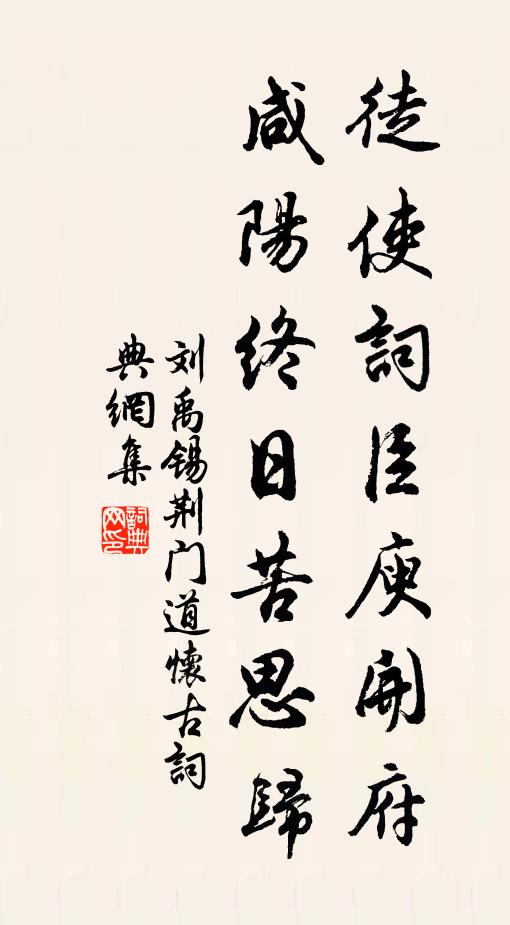 徒使詞臣庾開府
咸陽終日苦思歸
刘禹锡荆门道懷古詞
典網集
詞典
网印